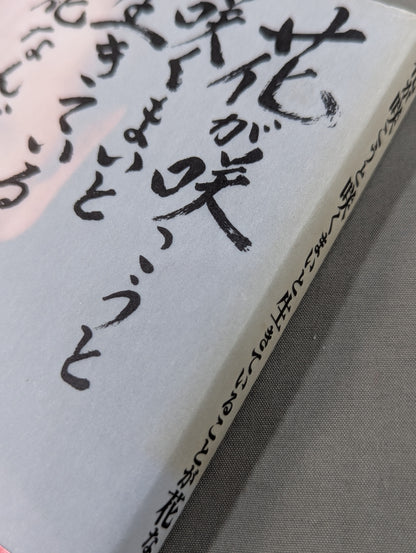 花が咲こうと
咲くまいと
生きている
花なんだ
花が咲こうと咲くまいと生きていることが花な